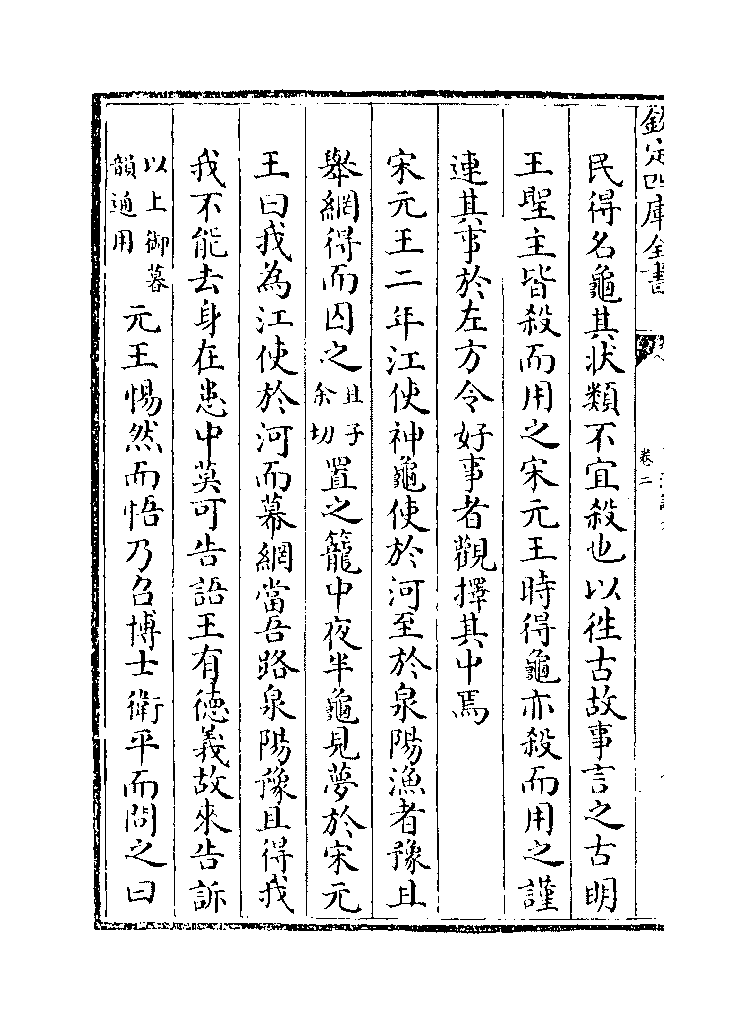 欽定四庫全書
卷二
民得名龜其狀類不宜殺也以徃古故事言之古明
王聖主皆殺而用之宋元王時得龜亦殺而用之謹
連其事於左方令好事者觀擇其中焉
宋元王二年江使神龜使於河至於泉陽漁者豫且
舉網得而囚之且子余切置之籠中夜半龜見夢於宋元
王曰我為江使於河而幕網當吾路泉陽豫且得我
我不能去身在患中莫可告語王有德義故來告訴
以上御暮韻通用元王惕然而悟乃召博士衛平而問之曰